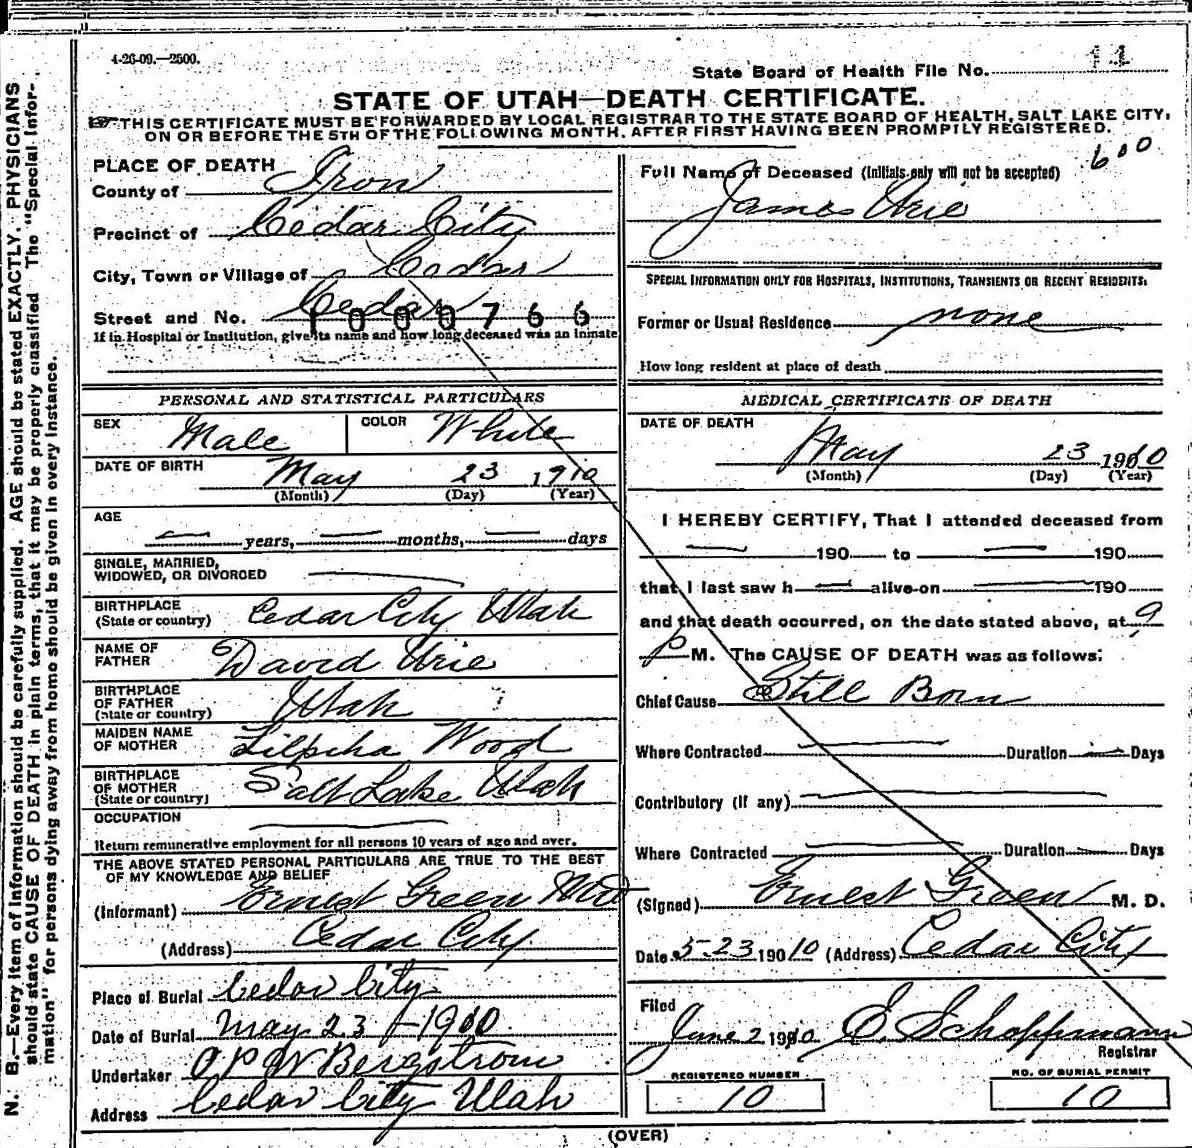 4-26-09.—2500.
State Board of Health File No. 14
STATE OF UTAH—DEATH CERTIFICATE.
THIS CERTIFICATE MUST BE FORWARDED BY LOCAL REGISTRAR TO THE STATE BOARD OF HEALTH, SALT LAKE CITY,
ON OR BEFORE THE 5TH OF THE FOLLOWING MONTH, AFTER FIRST HAVING BEEN PROMPILY REGISTERED.
PLACE OF DEATH
County of Iron
Precinct of Cedar City
City, Town or Village of Cedar
Street and No. Cedar
1000766
If in Hospital or Institution, give its name and how long deceased was an inmate
600
Full Name of Deceased (Initials only will not be accepted)
James Urie
SPECIAL INFORMATION ONLY FOR HOSPITALS, INSTITUTIONS, TRANSIENTS OR RECENT RESIDENTS.
Former or Usual Residence none
How long resident at place of death
PERSONAL AND STATISTICAL PARTICULARS
SEX Male COLOR White
DATE OF BIRTH May 23 1910
(Month) (Day) (Year)
AGE
— years, — months, — days
SINGLE, MARRIED,
WIDOWED, OR DIVORCED
BIRTHPLACE
(State or country) Cedar City Utah
NAME OF
FATHER David Urie
BIRTHPLACE
OF FATHER
(State or country) Utah
MAIDEN NAME
OF MOTHER Wood
BIRTHPLACE
OF MOTHER
(State or country) Salt Lake Utah
OCCUPATION
Return remunerative employment for all persons 10 years of age and over.
THE ABOVE STATED PERSONAL PARTICULARS ARE TRUE TO THE BEST
OF MY KNOWLEDGE AND BELIEF
(Informant) Ernest Green
(Address) Cedar City
Place of Burial Cedar City
Date of Burial May 23 - 1910
Undertaker Bergstrom
Address Cedar City Utah
MEDICAL CERTIFICATE OF DEATH
DATE OF DEATH
May 23 1910
(Month) (Day) (Year)
I HEREBY CERTIFY, That I attended deceased from
— 190 to — 190
that I last saw h — alive on — 190
and that death occurred, on the date stated above, at 9
P M. The CAUSE OF DEATH was as follows:
Chief Cause Still Born
Where Contracted — Duration — Days
Contributory (if any) —
Where Contracted — Duration — Days
(Signed) Ernest Green M. D.
Date 5-23 1910 (Address) Cedar City
Filed
June 2 1910 E. Schoppmann
Registrar
REGISTERED NUMBER
10
NO. OF BURIAL PERMIT
10
(OVER)
N. B.—Every item of information should be carefully supplied. AGE should be stated EXACTLY. PHYSICIANS
should state CAUSE OF DEATH in plain terms, that it may be properly classified. The "Special Infor-
mation" for persons dying away from home should be given in every instance.